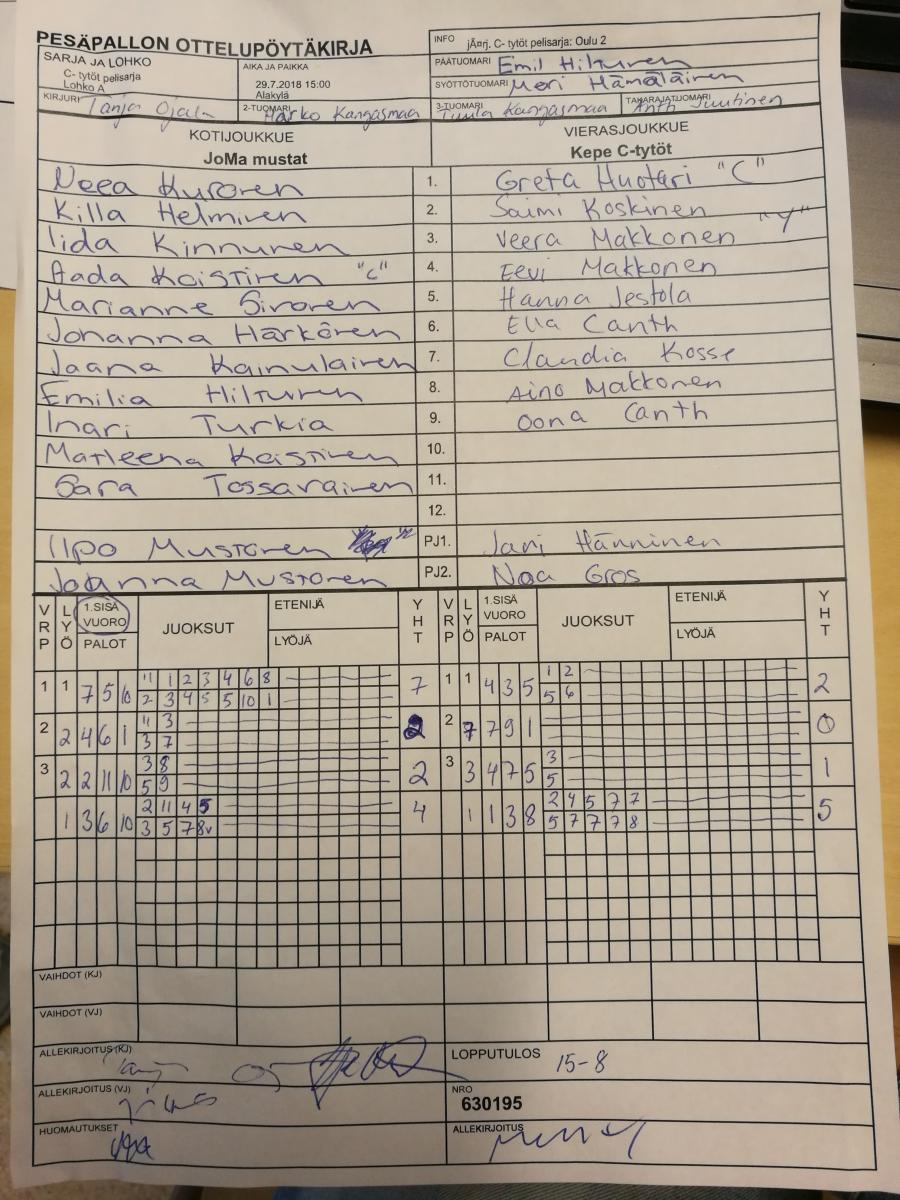 PESÄPALLON OTTELUPÖYTÄKIRJA
INFO jÄ¤rj. C- tytöt pelisarja: Oulu 2
SARJA JA LOHKO
C- tytöt pelisarja
Lohko A
AIKA JA PAIKKA
29.7.2018 15:00
Alakylä
PÄÄTUOMARI Emil Hiltunen
SYÖTTÖTUOMARI Meri Hämäläinen
KIRJURI Tanja Ojala
2-TUOMARI Marko Kangasmaa
3-TUOMARI Tuula Kangasmaa
TAKARAJATUOMARI Antti Juutinen
KOTIJOUKKUE
JoMa mustat
VIERASJOUKKUE
Kepe C-tytöt
Neea Kuronen 1. Greta Huotari "C"
Killa Helminen 2. Saimi Koskinen
Iida Kinnunen 3. Veera Makkonen "Y"
Aada Koistinen "C" 4. Eevi Makkonen
Marianne Sironen 5. Hanna Jestola
Johanna Härkönen 6. Ella Canth
Jaana Kainulainen 7. Claudia Kosse
Emilia Hiltunen 8. Aino Makkonen
Inari Turkia 9. Oona Canth
Matleena Koistinen 10.
Sara Tossavainen 11.
12.
Ilpo Mustonen PJ1. Jani Hänninen
Joanna Mustonen PJ2. Noa Gros
VRP LYÖ 1.SISÄ VUORO PALOT JUOKSUT ETENIJÄ LYÖJÄ YHT VRP LYÖ 1.SISÄ VUORO PALOT JUOKSUT ETENIJÄ LYÖJÄ YHT
1 1 7 5 10 11 1 2 3 4 6 8 7 1 1 4 3 5 1 2 2
2 3 4 5 5 10 1 5 6
2 2 4 6 1 11 3 2 2 7 7 9 1 0
3 7
3 2 2 11 10 3 8 2 3 3 4 7 5 3 1
5 9 5
1 3 6 10 2 11 4 5 4 1 1 3 8 2 4 5 7 7 5
3 5 7 8v 5 7 7 7 8
VAIHDOT (KJ)
VAIHDOT (VJ)
ALLEKIRJOITUS (KJ)
LOPPUTULOS 15-8
ALLEKIRJOITUS (VJ)
NRO
630195
HUOMAUTUKSET
ALLEKIRJOITUS